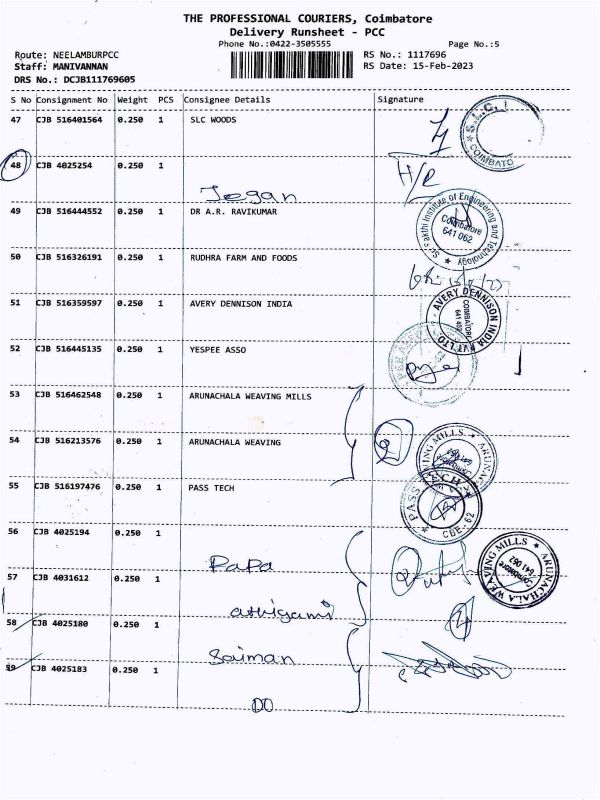 THE PROFESSIONAL COURIERS, Coimbatore
Delivery Runsheet - PCC
Phone No.:0422-3505555 Page No.:5
Route: NEELAMBURPCC RS No.: 1117696
Staff: MANIVANNAN RS Date: 15-Feb-2023
DRS No.: DCJB111769605
S No Consignment No Weight PCS Consignee Details Signature
47 CJB 516401564 0.250 1 SLC WOODS
S.L.C.
COIMBATO
48 CJB 4025254 0.250 1
H/R
Jegan
49 CJB 516444552 0.250 1 DR A.R. RAVIKUMAR
Sri Sakthi Institute of Engineering and Technology
Coimbatore
641 062
50 CJB 516326191 0.250 1 RUDHRA FARM AND FOODS
51 CJB 516359597 0.250 1 AVERY DENNISON INDIA
AVERY DENNISON INDIA PVT. LTD.
COIMBATORE
52 CJB 516445135 0.250 1 YESPEE ASSO
53 CJB 516462548 0.250 1 ARUNACHALA WEAVING MILLS
54 CJB 516213576 0.250 1 ARUNACHALA WEAVING
VING MILLS ★ ARUNAC
55 CJB 516197476 0.250 1 PASS TECH
PASS TECH
CBE - 62
56 CJB 4025194 0.250 1
Papa
ARUNACHALA WEAVING MILLS
Coimbatore
641 062
57 CJB 4031612 0.250 1
athigami
58 CJB 4025180 0.250 1
Saiman
59 CJB 4025183 0.250 1
DD